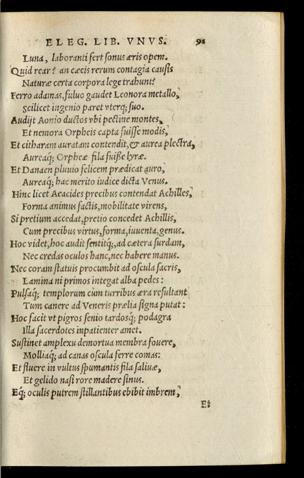 ELEG. LIB. VNVS. 91
Luna, laboranti fert sonus æris opem.
Quid rear? an cæcis rerum contagia causis
Naturæ certa corpora lege trahunt?
Ferro adamas, fuluo gaudet Leonora metallo,
Scilicet ingenio paret vterq; suo.
Audijt Aonio ductos vbi pectine montes,
Et nemora Orpheis capta fuisse modis,
Et citharam auratam contendit, & aurea plectra,
Aureaq; Orpheæ fila fuisse lyræ.
Et Danaen pluuio felicem prædicat auro,
Aureaq; hac merito iudice dicta Venus.
Hinc licet Aeacides precibus contendat Achilles,
Forma animus factis, mobilitate virens,
Si pretium accedat, pretio concedet Achillis,
Cum precibus virtus, forma, iuuenta, genus.
Hoc videt, hoc audit sentitq;, ad cætera surdam,
Nec credas oculos hanc, nec habere manus.
Nec coram statuis procumbit ad oscula sacris,
Lamina ni primos integat alba pedes:
Pulsaq; templorum cùm turribus æra resultant
Tum canere ad Veneris prælia signa putat:
Hoc facit vt pigros senio tardosq; podagra
Illa sacerdotes inpatienter amet.
Sustinet amplexu demortua membra fouere,
Molliaq; ad canas oscula ferre comas:
Et fluere in vultus spumantis fila saliuæ,
Et gelido nasi rore madere sinus.
Eq; oculis putrem stillantibus ebibit imbrem,
Et